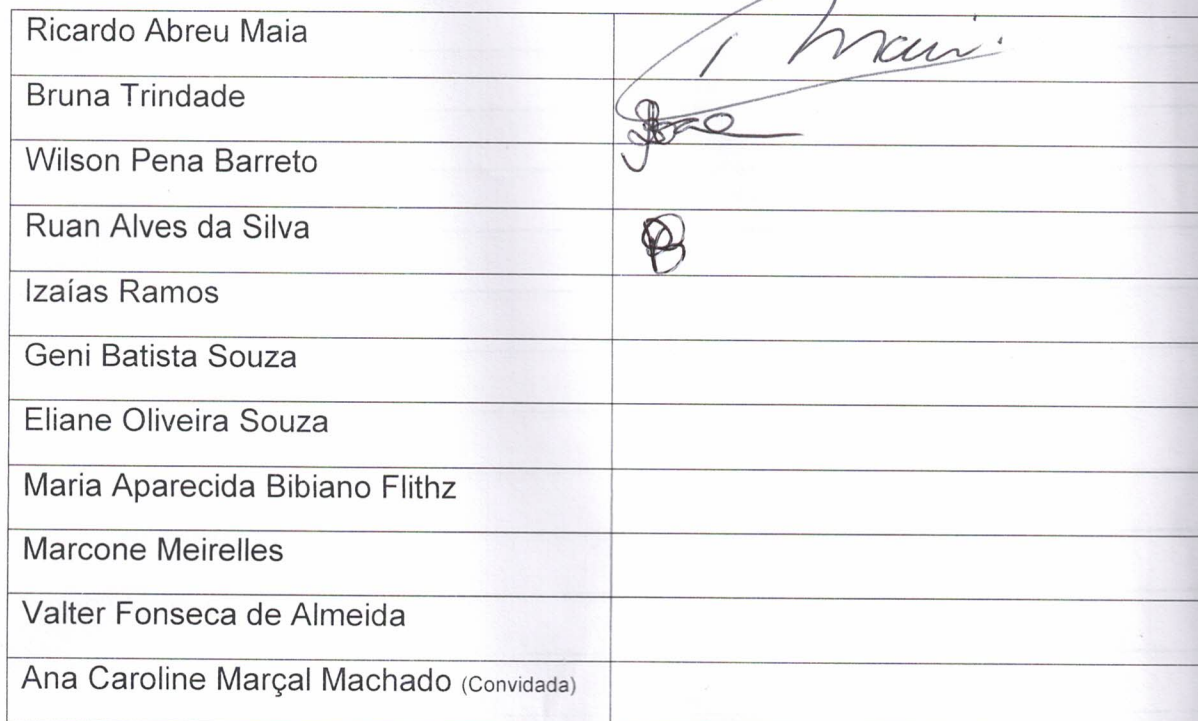 Ricardo Abreu Maia
Bruna Trindade
Wilson Pena Barreto
Ruan Alves da Silva
Izaías Ramos
Geni Batista Souza
Eliane Oliveira Souza
Maria Aparecida Bibiano Flithz
Marcone Meirelles
Valter Fonseca de Almeida
Ana Caroline Marçal Machado (Convidada)